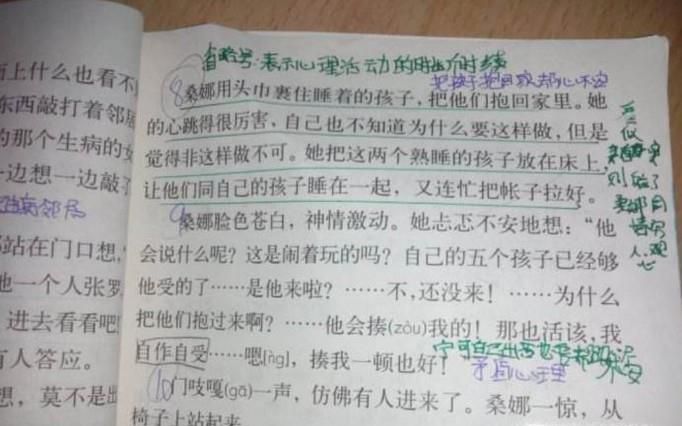 面上什么也看不
东西敲打着邻居
的那个生病的女
一边想一边敲了
邻居
站在门口想，
他一个人张罗
进去看看吧
有人答应。
想，莫不是出
省略号：表示心理活动的时断时续
⑧桑娜用头巾裹住睡着的孩子，把他们抱回家里。她
的心跳得很厉害，自己也不知道为什么要这样做，但是
觉得非这样做不可。她把这两个熟睡的孩子放在床上，
让他们同自己的孩子睡在一起，又连忙把帐子拉好。
⑨桑娜脸色苍白，神情激动。她忐忑不安地想：“他
会说什么呢？这是闹着玩的吗？自己的五个孩子已经够
他受的了……是他来啦？……不，还没来！……为什么
把他们抱过来啊？……他会揍(zòu)我的！那也活该，我
自作自受……嗯(ǹg)，揍我一顿也好！
矛盾心理
⑩门吱嘎(gā)一声，仿佛有人进来了。桑娜一惊，从
椅子上站起来。